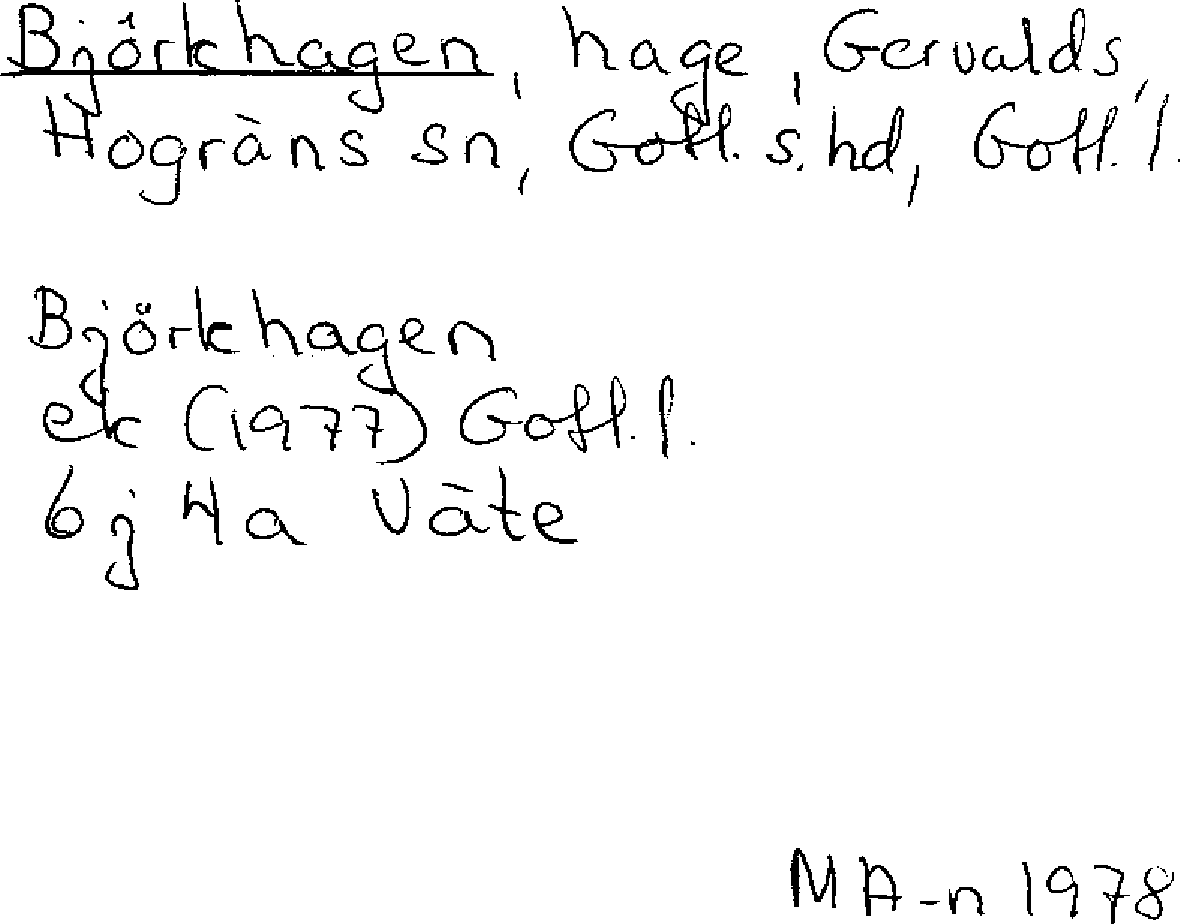 Björkhagen, hage, Gervalds,
Hogräns sn, Gotl. s. hd, Gotl. l.
Björkhagen
ek (1977) Gotl. l.
6j 4a Väte
MA-n 1978